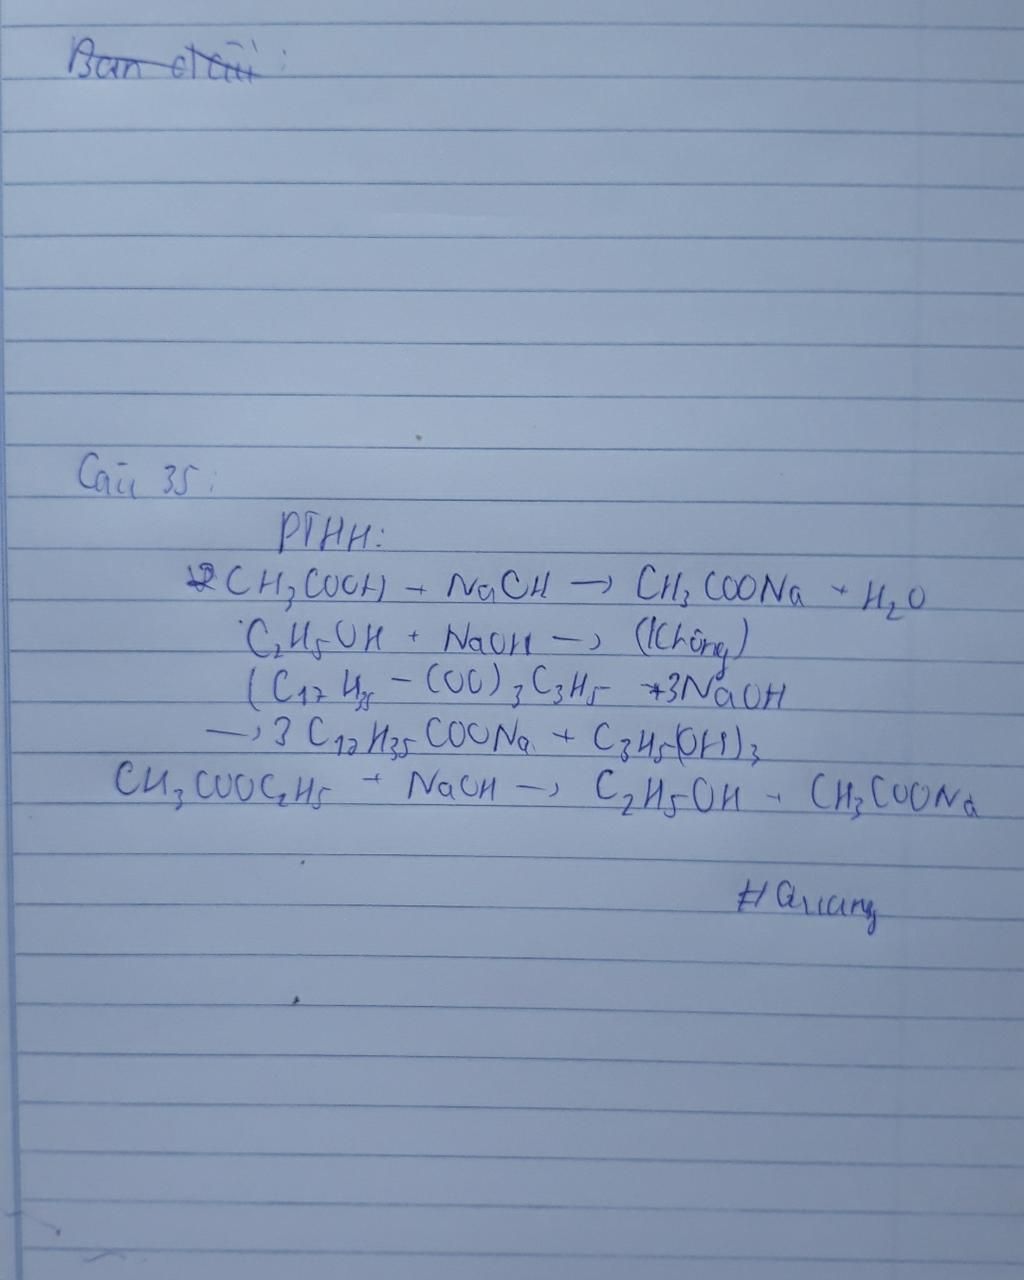 Ban đầu:
Câu 35:
PTHH:
CH₃COOH + NaOH → CH₃COONa + H₂O
C₂H₅OH + NaOH → (Không)
(C₁₇H₃₅-COO)₃C₃H₅ + 3NaOH
→ 3 C₁₇H₃₅COONa + C₃H₅(OH)₃
CH₃COOC₂H₅ + NaOH → C₂H₅OH + CH₃COONa
#Quang